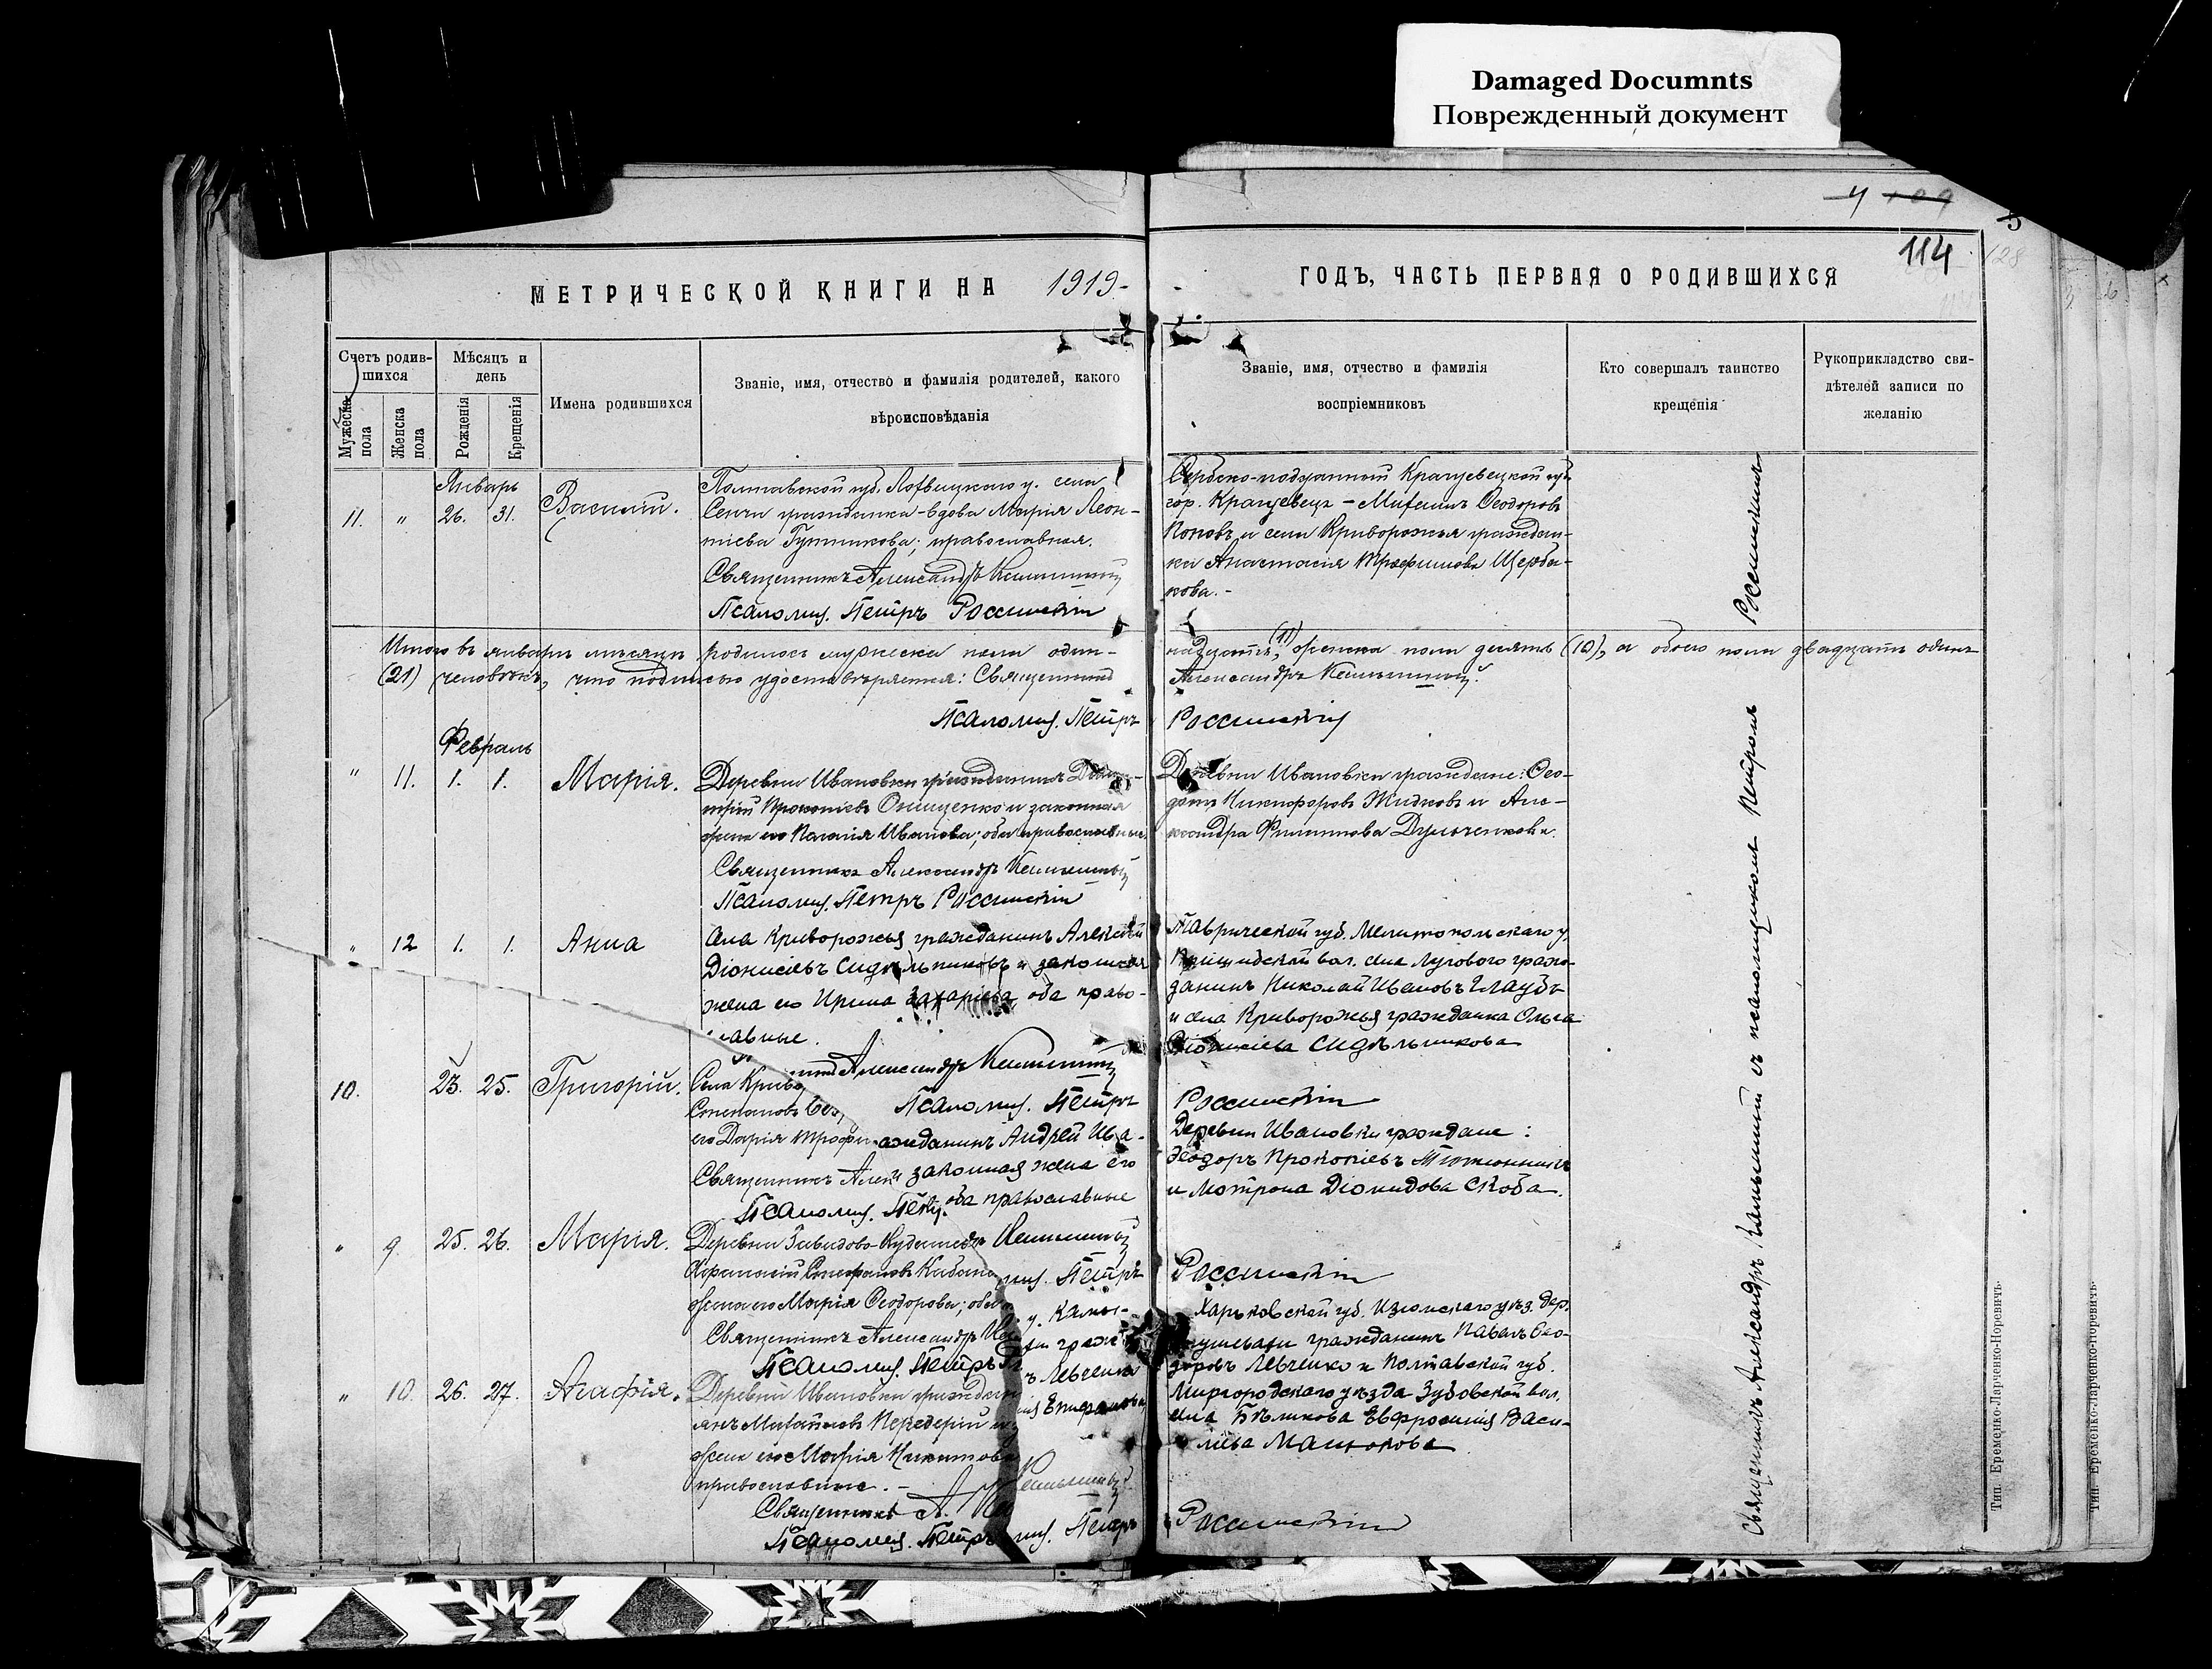 Damaged Documnts
Поврежденный документ
4 109
5
114
128
МЕТРИЧЕСКОЙ КНИГИ НА 1919-
ГОДЪ, ЧАСТЬ ПЕРВАЯ О РОДИВШИХСЯ
Счетъ родив-
шихся
Мужеска
пола
Женска
пола
Мѣсяцъ и
день
Рожденія
Крещенія
Имена родившихся
Званіе, имя, отчество и фамилія родителей, какого
вѣроисповѣданія
Званіе, имя, отчество и фамилія
воспріемниковъ
Кто совершалъ таинство
крещенія
Рукоприкладство сви-
дѣтелей записи по
желанію
Январь
11. " 26. 31. Василій.
Полтавской губ. Лохвицкаго у. села
Сенчи гражданка-вдова Марія Леон-
тіева Гутникова; православная.
Священникъ Александръ
Псаломщ. Петръ Россинскій
Сербско-подданный Крагуевецкой губ.
гор. Крагуевецъ - Феодоровъ
Поповъ и села Криворожья граждан-
ка Анастасія Трофимова Щерба-
кова.-
Итого въ январѣ мѣсяцѣ родилось мужеска пола один-
надцать (11), женска пола десять (10), а обоего пола двадцать одинъ
(21) человѣкъ, что подписью удостовѣряется: Священникъ
Александръ
Псаломщ. Петръ Россинскій
Февраль
" 11. 1. 1. Марія.
Деревни Ивановки гражданинъ
Прокопіевъ Онищенко и законная
жена его Пелагія Иванова; оба православные.
Священникъ Александръ
Псаломщ. Петръ Россинскій
Деревни Ивановки граждане: Фео-
дотъ Никифоровъ Жидковъ и Але-
ксандра Филиппова
" 12 1. 1. Анна
Села Криворожья гражданинъ Алексѣй
Діонисіевъ Сидѣльниковъ и законная
жена его Ирина Захаріева оба право-
славные.
Александръ
Псаломщ. Петръ
Таврической губ. Мелитопольскаго у.
вол. села Лугового граж-
данинъ Николай Ивановъ
и села Криворожья гражданка Ольга
Діонисіева Сидѣльникова
Россинскій
10. 23. 25. Григорій.
Села Криво
Степановъ
его Дарія Трофи
Священникъ Алек
Псаломщ. Петр
гражданинъ Андрей Ива-
и законная жена его
оба православные
Деревни Ивановки граждане:
Феодоръ Прокопіевъ
и Мотрона Діомидова Скоба.
" 9. 25. 26. Марія.
Деревни
Афанасій Стефановъ
жена его Марія Феодорова; оба
Священникъ Александръ
Псаломщ. Петръ
щ. Петръ
Россинскій
у. Камы-
граж
ъ Левченко
Харьковской губ. Изюмскаго уѣз. дер.
гражданинъ Павелъ Фео-
доровъ Левченко и Полтавской губ.
Миргородскаго уѣзда Зубовской вол.
села Бѣликова Евфросинія Васи-
ліева
" 10. 26. 27. Агафія.
Деревни Ивановки граждан
Михайловъ
жена его Марія Никитова
православные.-
Священникъ А.
Псаломщ. Петръ
щ. Петръ
Россинскій
Священникъ Александръ съ псаломщикомъ Петромъ Россинскимъ
Тип. Еременко-Ларченко-Норевичъ.
Тип. Еременко-Ларченко-Норевичъ.